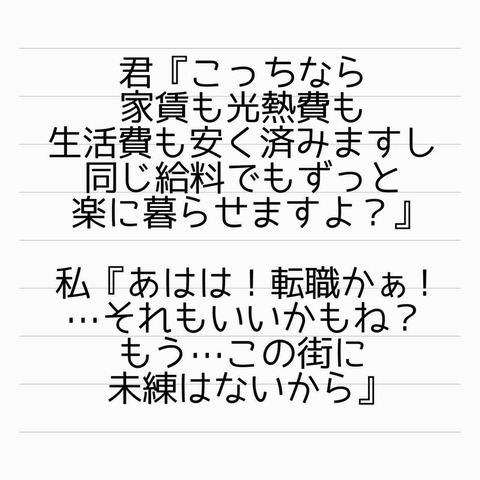 君『こっちなら
家賃も光熱費も
生活費も安く済みますし
同じ給料でもずっと
楽に暮らせますよ？』
私『あはは！転職かぁ！
…それもいいかもね？
もう…この街に
未練はないから』